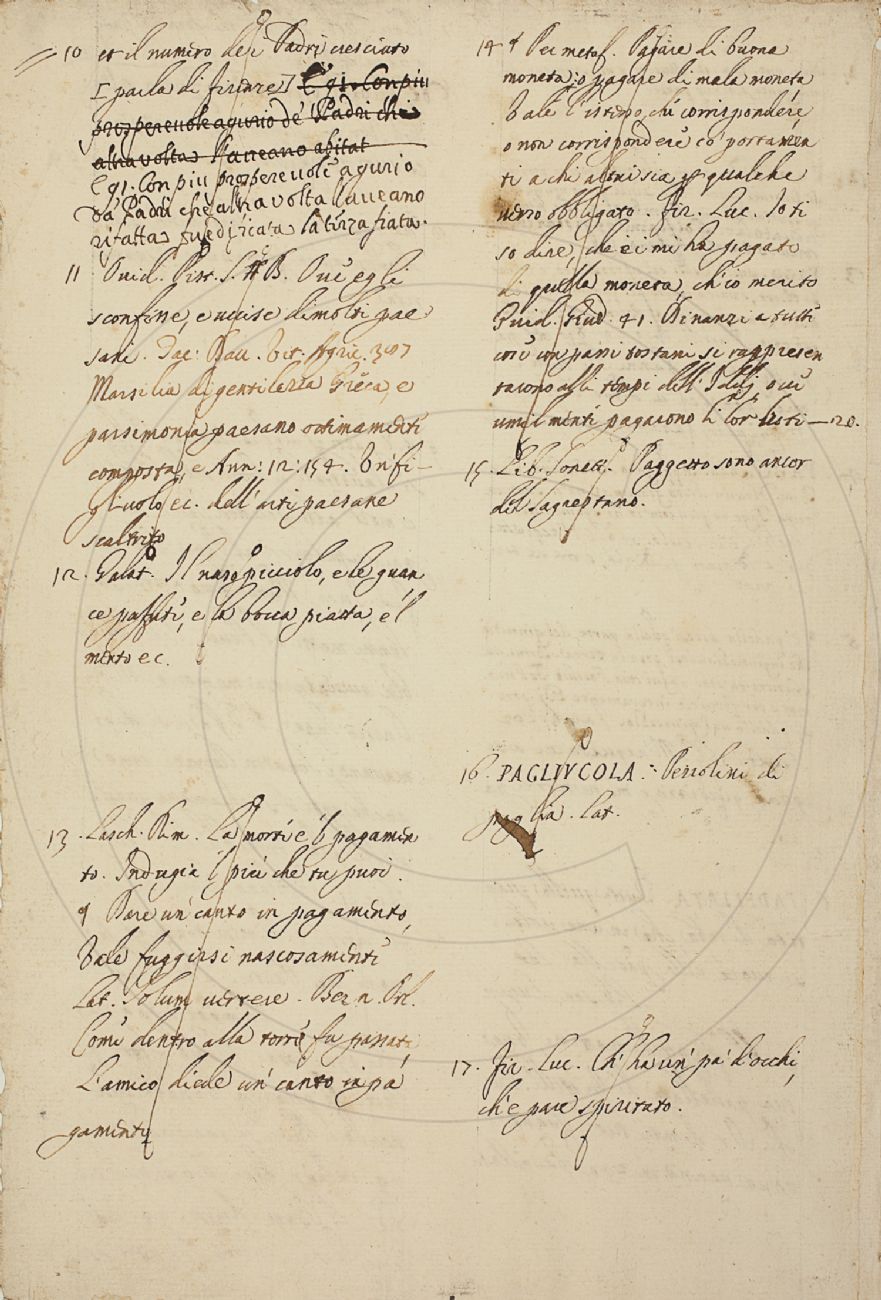 10 et il numero de i Padri cresciuto
[parla di Firenze] E 91. Con piu
prosperevole agurio de' Padri che
altra volta l'aueano abitat
E 91. Con piu prosperevole agurio
da Padri che altra volta l'aueano
rifatta, fu edificata la terza fiata.
11 Ovid. Pist. S. B. Ove egli
sconfisse, e uccise di molti pae
sani. Dav. Vit. Agric. 387
Marsilia di gentilezza Greca, e
parsimonia paesana ottimamente
composta, e Ann: 12: 154. Un fi-
gliuolo ec. dell'arti paesane
scaltrito
12. Galat. Il naso picciolo, e le guan
ce paffute, e la bocca piatta, e 'l
mento ec.
13. Lasch. Rim. La morte è 'l pagamen
to. Indugia 'l più che tu puoi.
¶ Dare un canto in pagamento,
Vale fuggirsi nascosamente
Lat. Solum vertere. Bern. Orl.
Come dentro alla torre fu passat
L'amico diede un canto in pa
gamento
14 ¶ Per metaf. Pagare di buona
moneta: o pagare di mala moneta
Vale l'istesso, che corrispondere
o non corrispondere co' portamen
ti a chi altri sia p qualche
verso obbligato. Fir. Luc. Io ti
so dire, che ei mi ha pagato
di quella moneta, ch'io merito
Guid. Giud. 41. Dinanzi a tutti
così con passi tostani si rappresen
tarono alli tempi dell' Idelj, ove
umilmente pagarono li lor — 20.
15. Lib. Sonett. Paggetto sono ancor
del Sagrestano.
16. PAGLIVCOLA. Perzolini di
paglia. Lat.
17. Fir. Luc. Ch' ha un pa' d'occhi,
che pare spiritato.